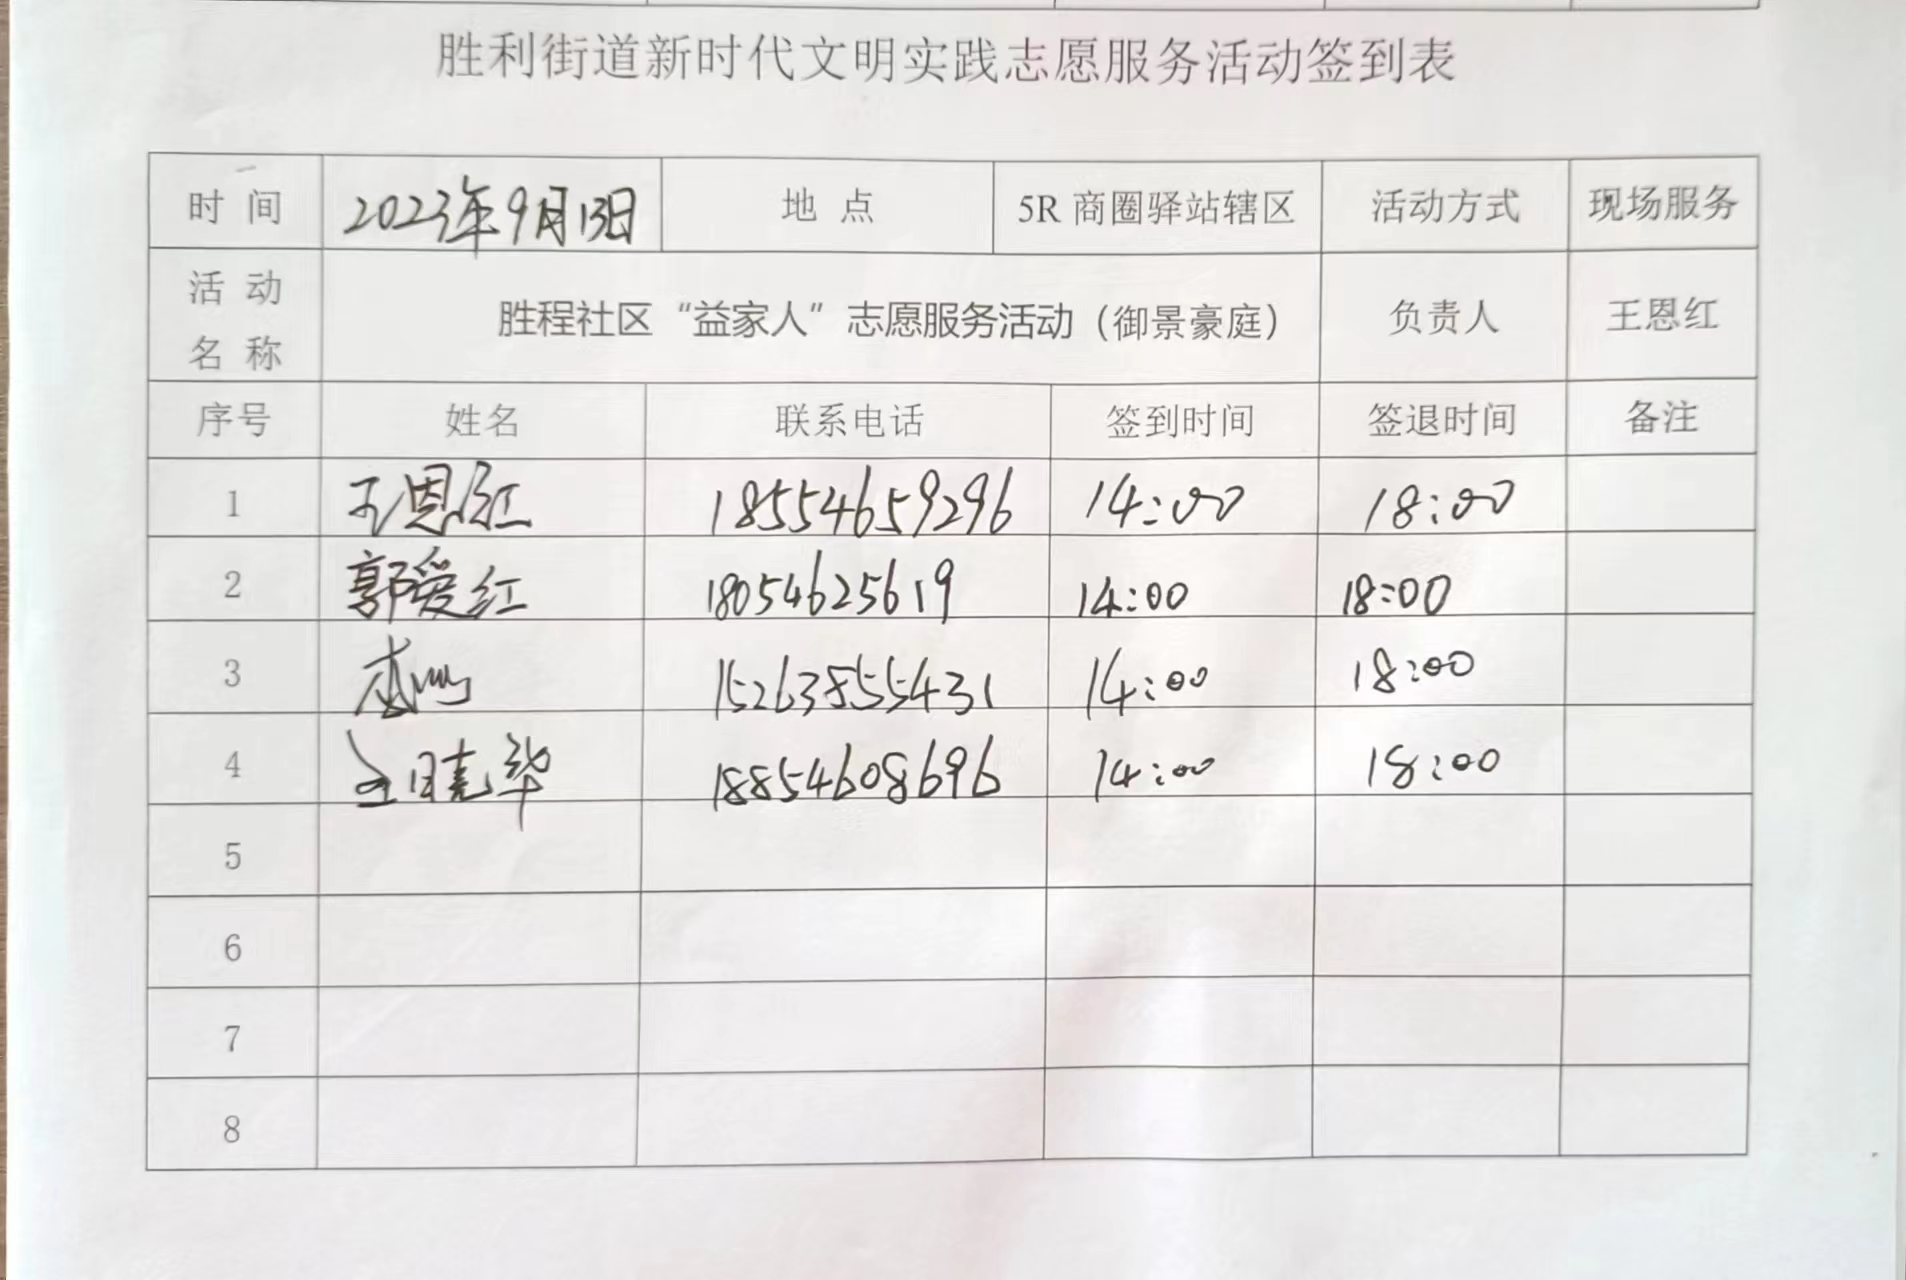 胜利街道新时代文明实践志愿服务活动签到表
时 间 2023年9月13日 地 点 5R 商圈驿站辖区 活动方式 现场服务
活 动 名 称 胜程社区“益家人”志愿服务活动（御景豪庭） 负责人 王恩红
序号 姓名 联系电话 签到时间 签退时间 备注
1 王恩红 18554659296 14:00 18:00
2 郭爱红 18054625619 14:00 18:00
3 15263855431 14:00 18:00
4 王晓华 18854608696 14:00 18:00
5
6
7
8